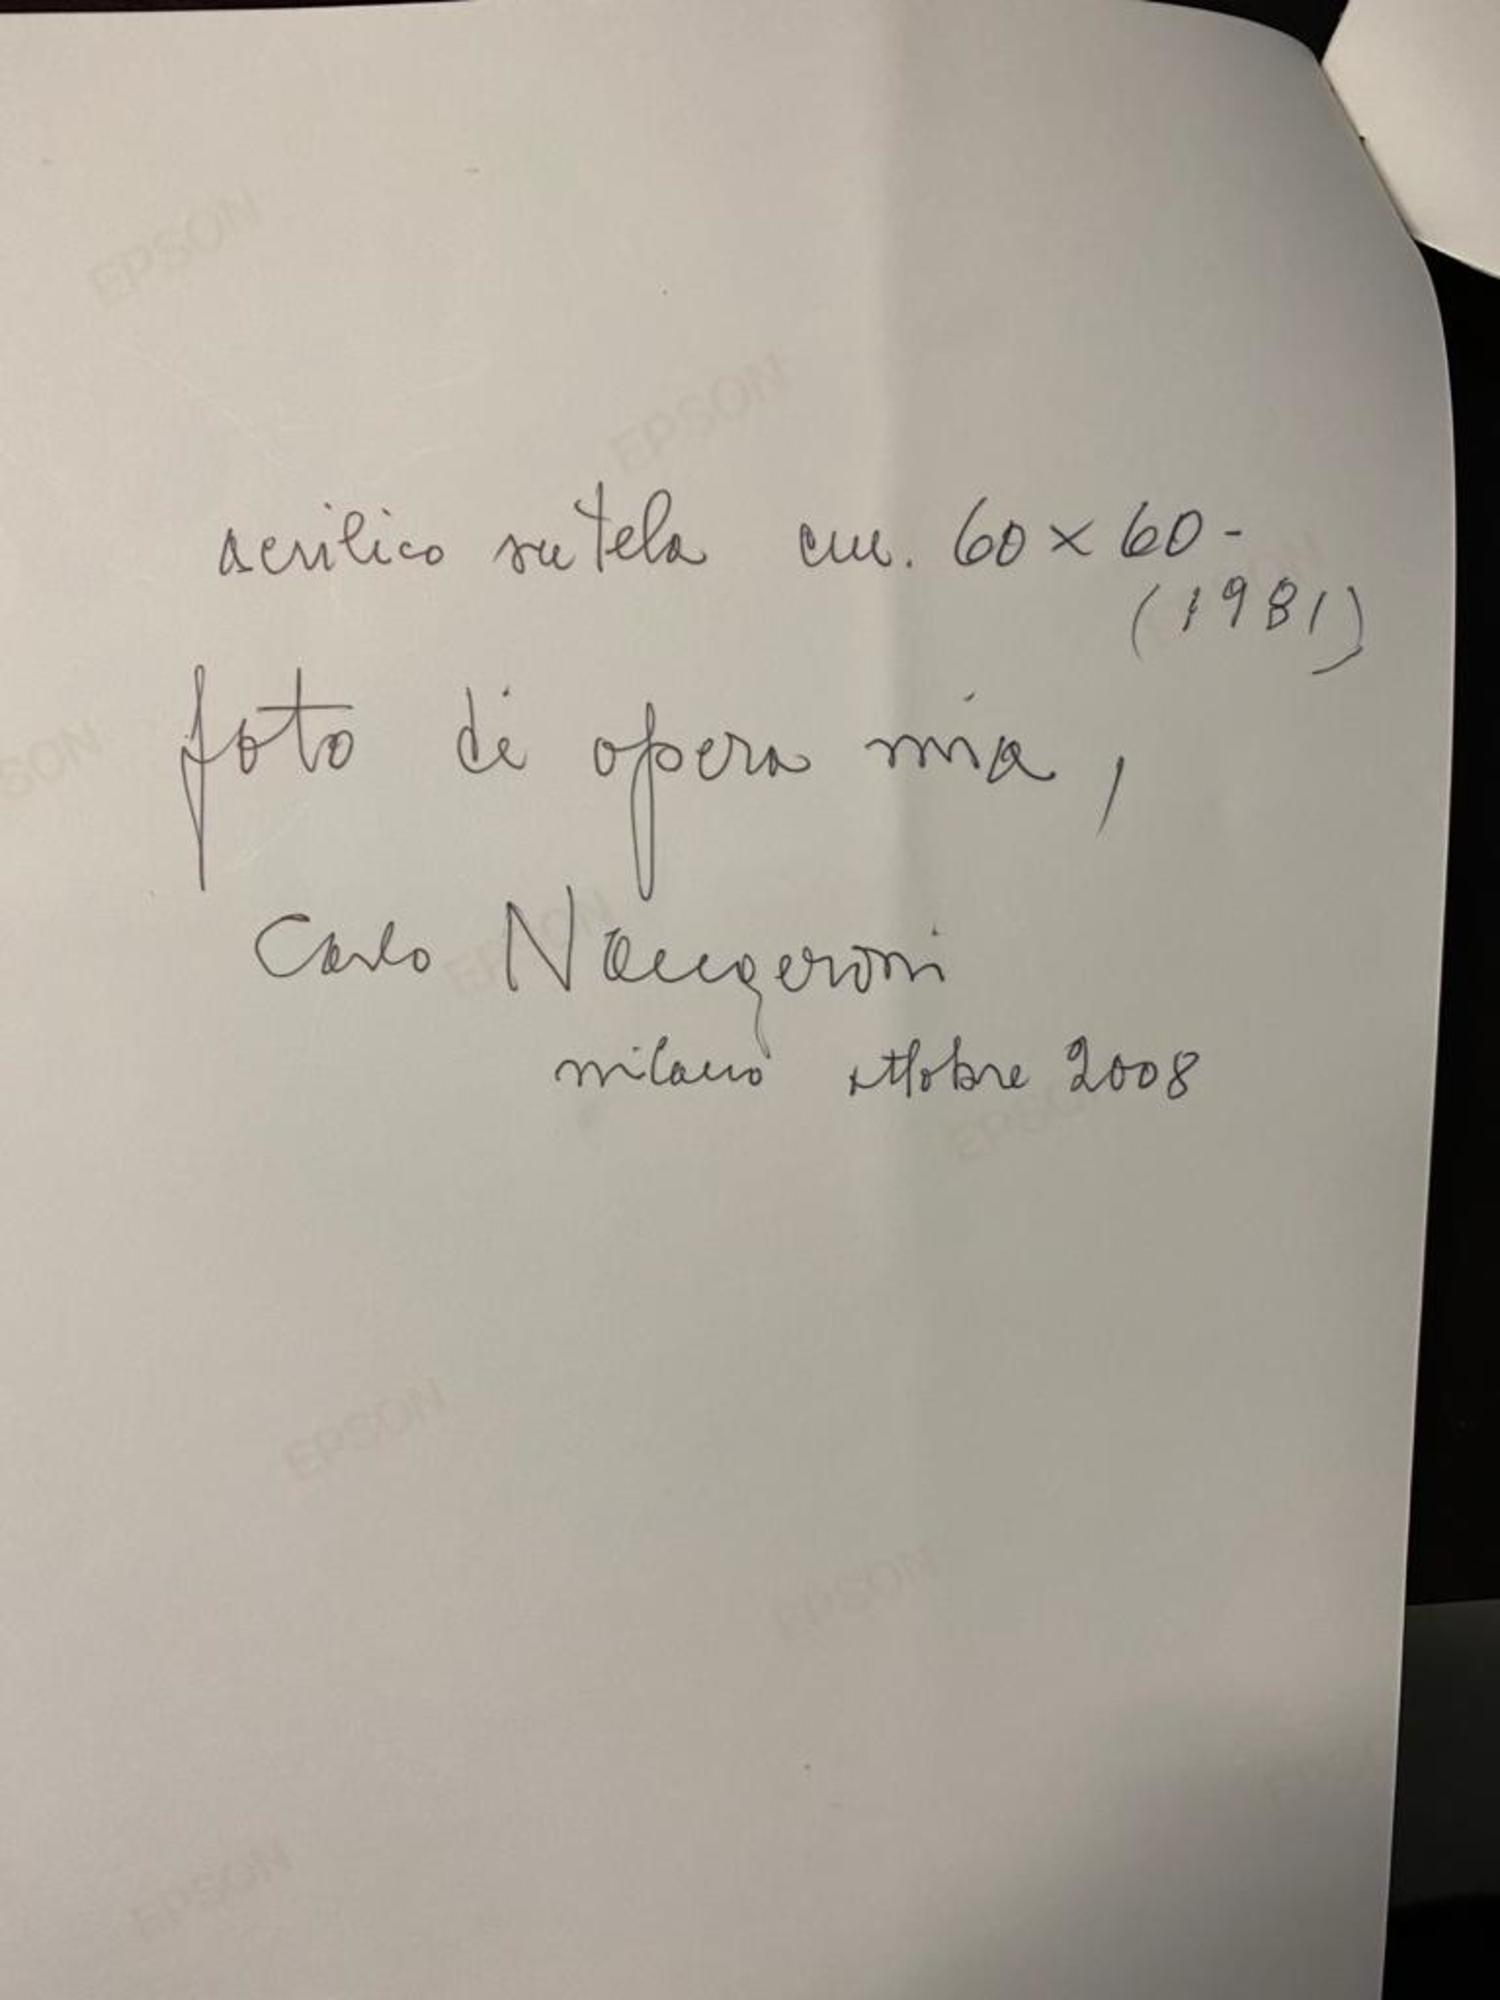 EPSON
EPSON
acrilico su tela cm. 60 x 60 -
(1981)
foto di opera mia,
Carlo Nangeroni
milano ottobre 2008
EPSON
EPSON
EPSON
EPSON
EPSON